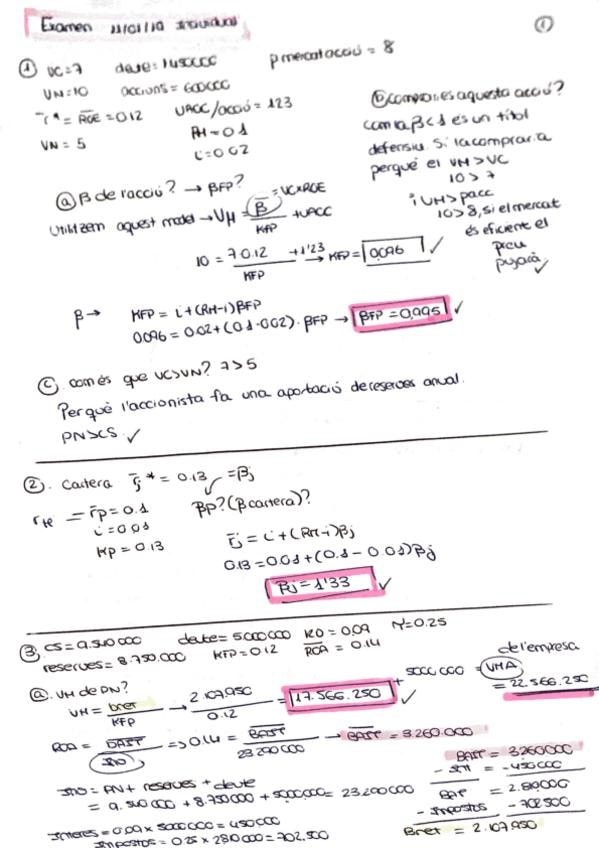 Examen 11/01/19 individual
①
① VC=7 deute=1450000 p mercat acció = 8
VN=10 accions = 600000
r* = ROE = 0'12 VACC/acció = 1'23
VN = 5 RM = 0'1
i = 0'02
ⓐ β de l'acció? → βFP?
= VC×ROE
Utilitzem aquest model → VM = B / KFP + VACC
10 = 7·0.12 / KFP + 1'23 → KFP = 0'096 ✓
β → KFP = i + (RM-i) βFP
0'096 = 0.02 + (0.1 - 0.02) · βFP → βFP = 0,995 ✓
ⓑ compraries aquesta acció?
com la β<1 és un títol
defensiu. Sí la compraria
perquè el VM > VC
10 > 7
i VM > pacc
10 > 8, si el mercat
és eficient el
preu
pujarà ✓
ⓒ com és que VC>VN? 7>5
Perquè l'accionista fa una aportació de reserves anual.
PN>CS ✓
② Cartera r̄j* = 0.13 = βj
rM = r̄p = 0.1 βp? (β cartera)?
i = 0'01
Kp = 0.13
r̄j = i + (RM-i) βj
0.13 = 0.01 + (0.1 - 0.01) βj
βj = 1'33 ✓
③ CS = 9.510.000 deute = 5000000 KD = 0,09 T = 0.25
reserves = 8.750.000 KFP = 0'12 ROA = 0.14
ⓐ VM de PN?
VM = bnet / KFP → 2.107.950 / 0.12 = 17.566.250 ✓ + 5000 000 = VMA de l'empresa
= 22.566.250
ROA = BAIT / Ino => 0.14 = BAIT / 23 290 000 → BAIT = 3.260.000
Ino = PN + reserves + deute
= 9.510 000 + 8.750000 + 5000000 = 23.200000
Interes = 0.09 × 5000000 = 450000
Impostos = 0.25 × 2810000 = 702.500
BAIT = 3260000
- Int = -450000
BAT = 2.810000
- Impostos -702500
Bnet = 2.107.950